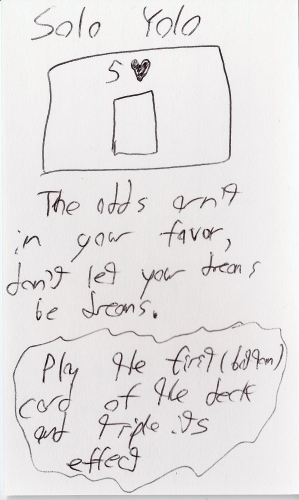 Solo Yolo
5♥
The odds arn't
in your favor,
don't let your dreams
be dreams.
Play the first (bottom)
card of the deck
and triple its
effect